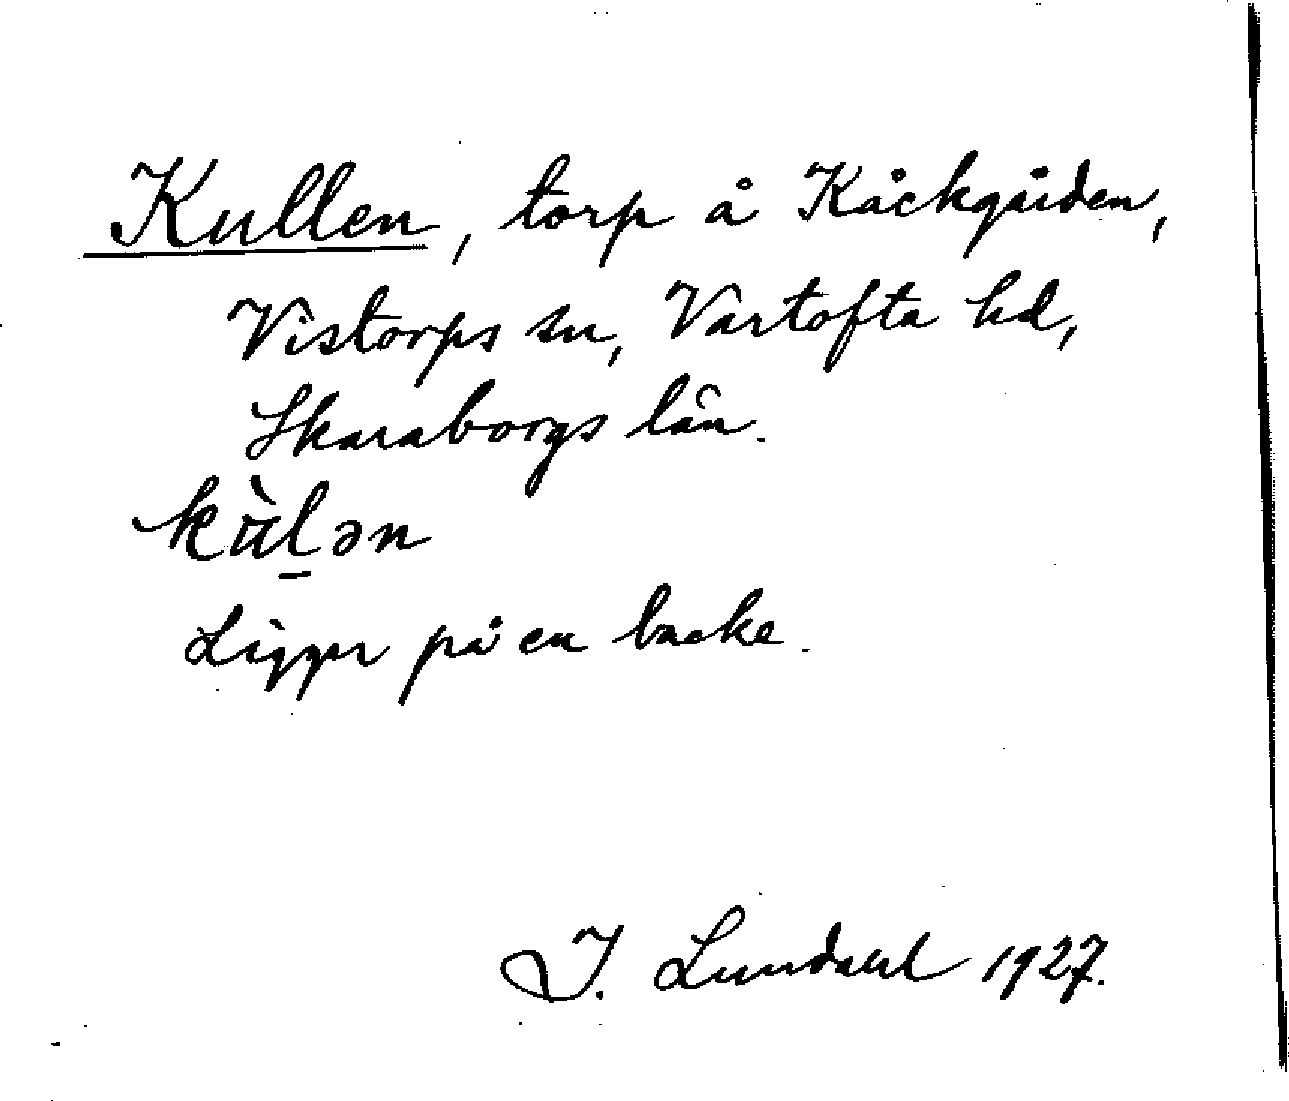 Kullen, torp å Kåckgården,
Vistorps sn, Vartofta hd,
Skaraborgs län.
kὰl̠ən
Ligger på en backe.
I. Lundahl 1927.